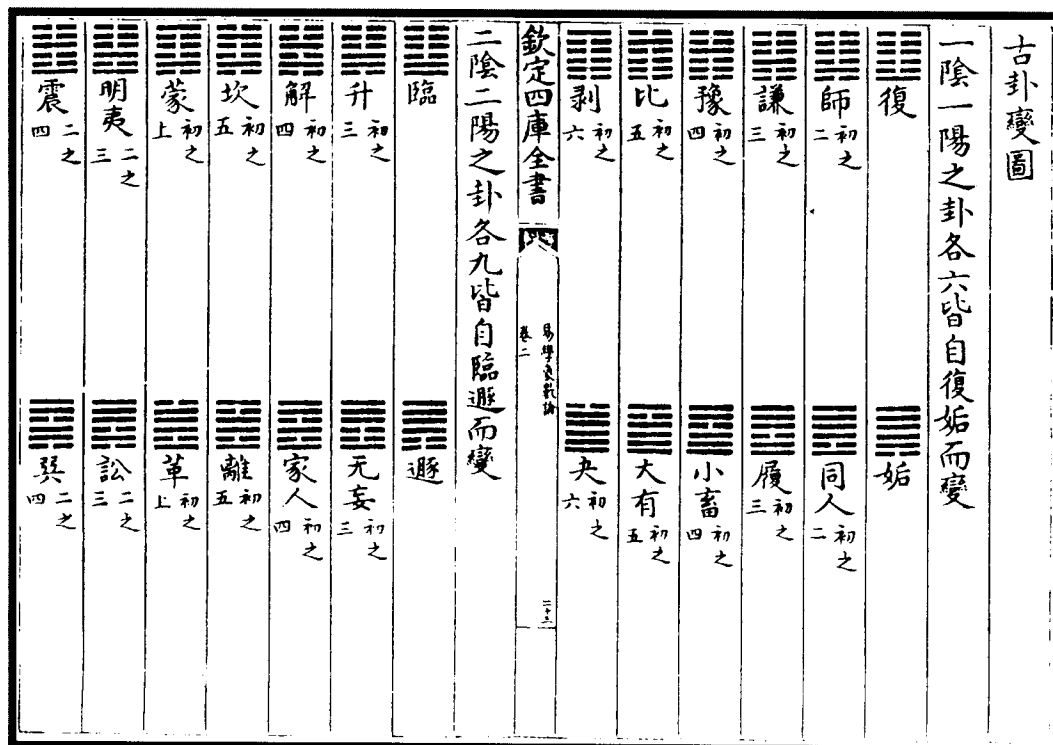 古卦變圖
一陰一陽之卦各六皆自復姤而變
復　姤
師 初之二　同人 初之二
謙 初之三　履 初之三
豫 初之四　小畜 初之四
比 初之五　大有 初之五
剥 初之六　夬 初之六
欽定四庫全書　易學象數論 卷二　二十三
二陰二陽之卦各九皆自臨遯而變
臨　遯
升 初之三　无妄 初之三
解 初之四　家人 初之四
坎 初之五　離 初之五
蒙 初之上　革 初之上
明夷 二之三　訟 二之三
震 二之四　巽 二之四